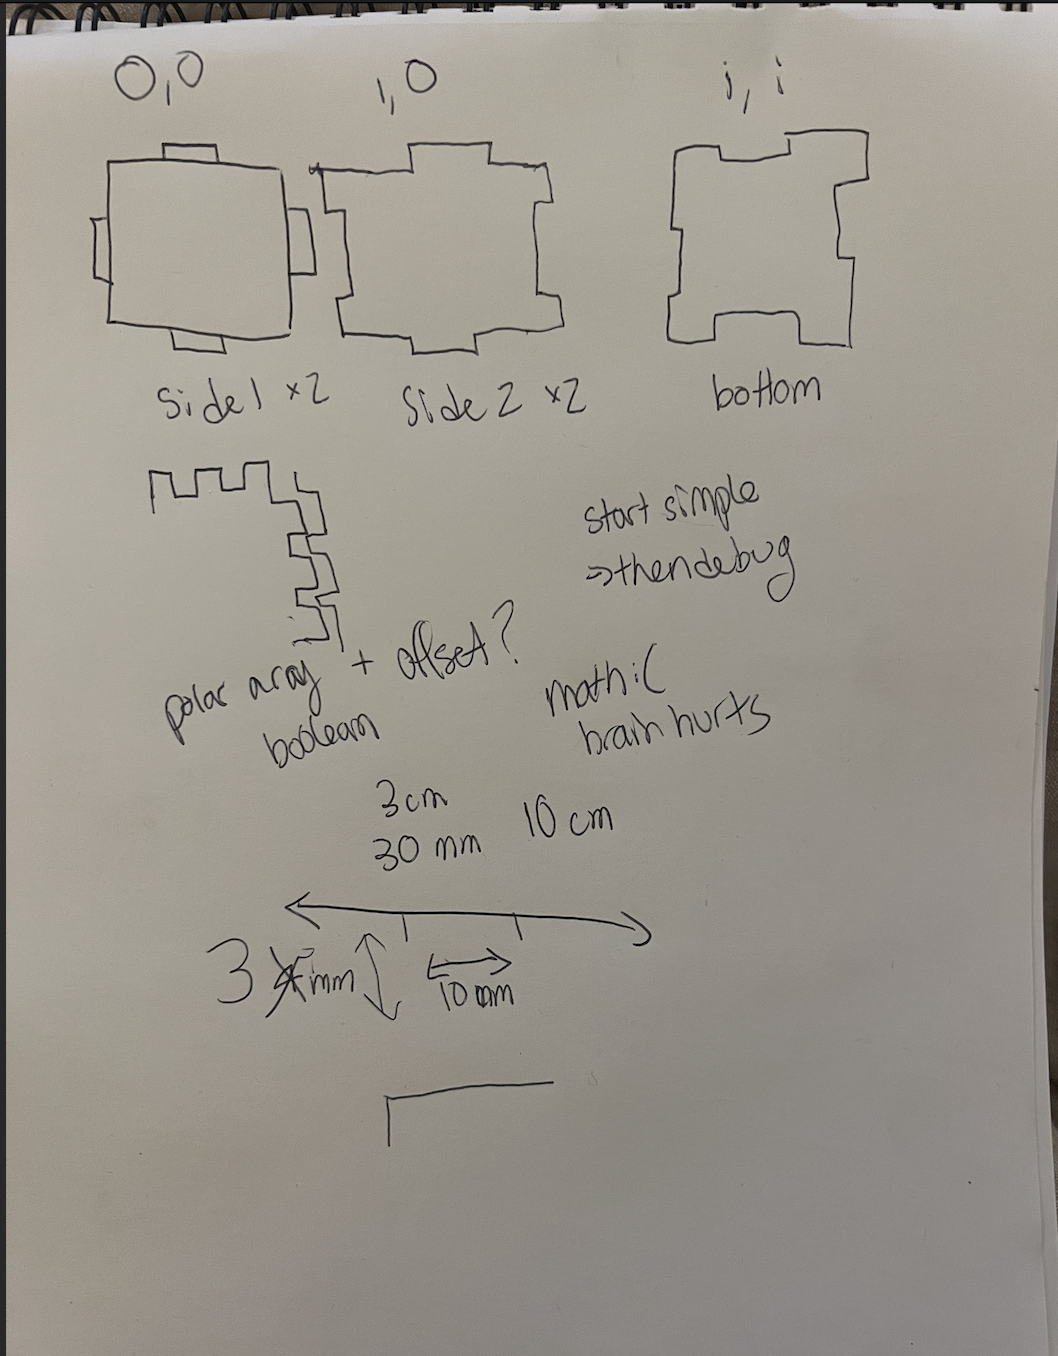 0,0
1,0
i, i
Side 1 x2
Side 2 x2
bottom
start simple
→ then debug
polar array + offset?
boolean
math :(
brain hurts
3 cm
30 mm
10 cm
3 mm
10 mm